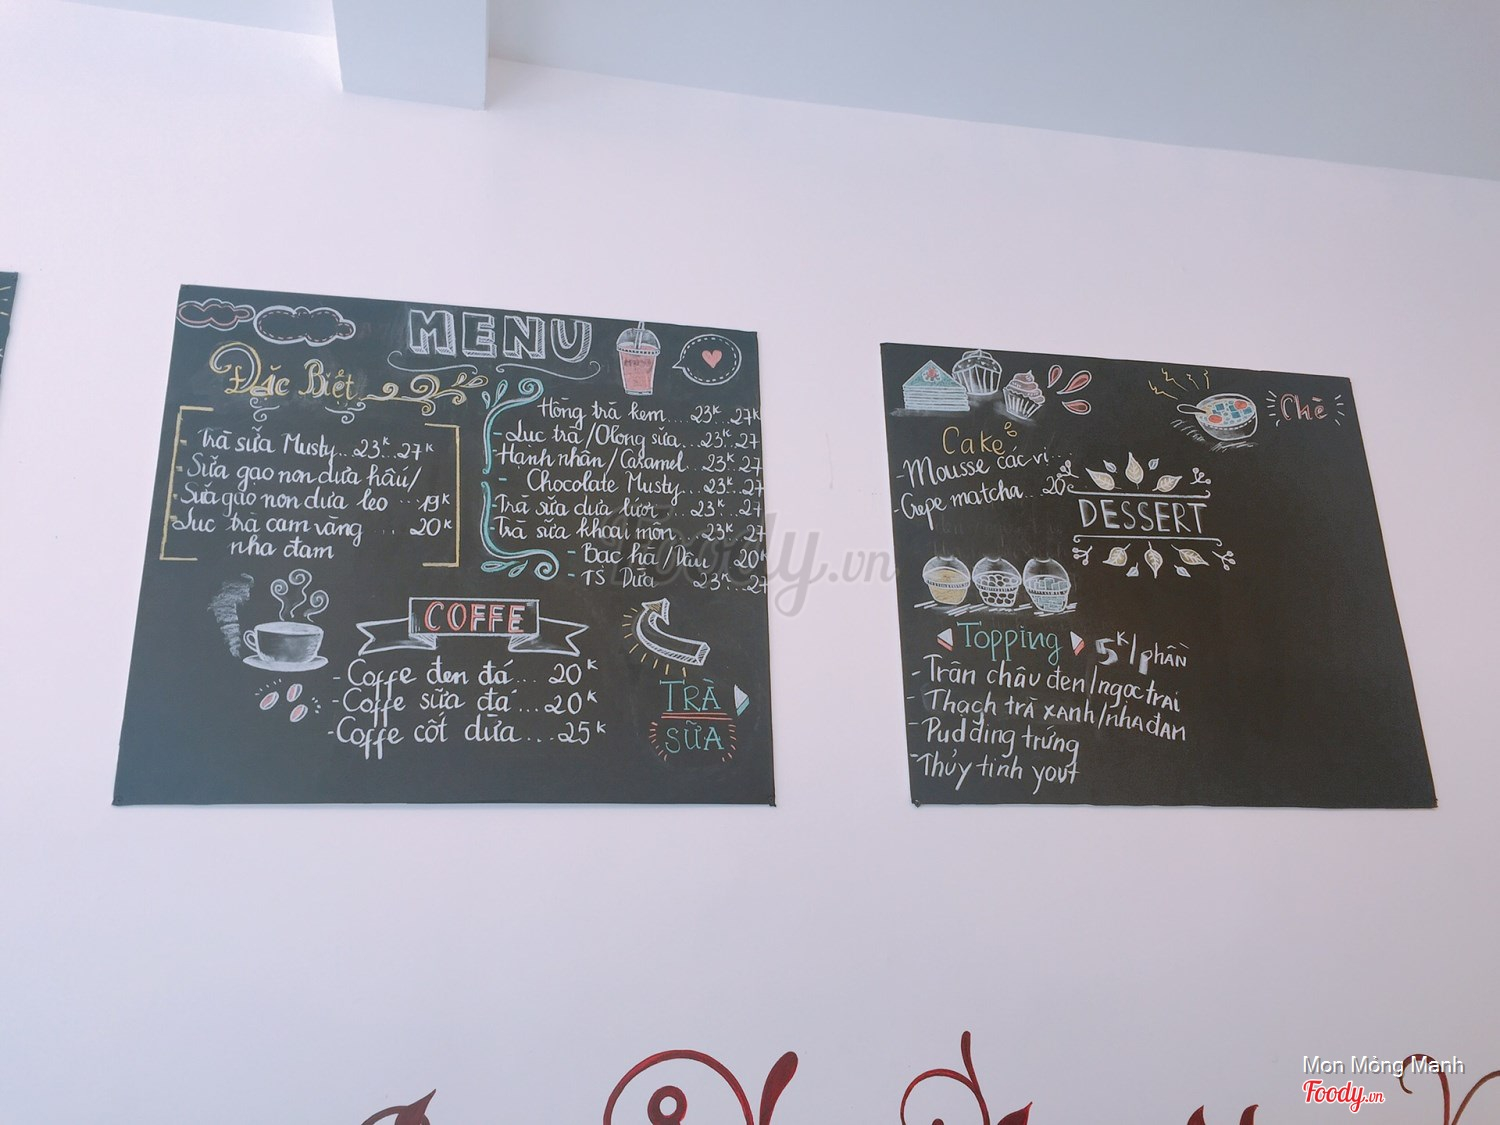 MENU
Đặc Biệt
- Trà sữa Musty...23K..27K
- Sữa gạo non dưa hấu/
- Sữa gạo non dưa leo ...19K
- Lục trà cam vàng ... 20K
nha đam
Hồng trà kem...23K..27K
- Lục trà/Olong sữa...23K..27
- Hạnh nhân/Caramel..23K..27
- Chocolate Musty...23K..27
- Trà sữa dưa lưới...23K..27
- Trà sữa khoai môn...23K..27
- Bạc hà/Dâu 20K
- TS Dừa 23K..27
COFFE
- Coffe đen đá... 20K
- Coffe sữa đá...20K
- Coffe cốt dừa...25K
TRÀ
SỮA
Chè
Cake
- Mousse các vị...
- Crepe matcha...20K
DESSERT
Topping 5K/phần
- Trân châu đen/ngọc trai
- Thạch trà xanh/nha đam
- Pudding trứng
- Thủy tinh yout
Foody.vn
Mon Mỏng Manh
Foody.vn